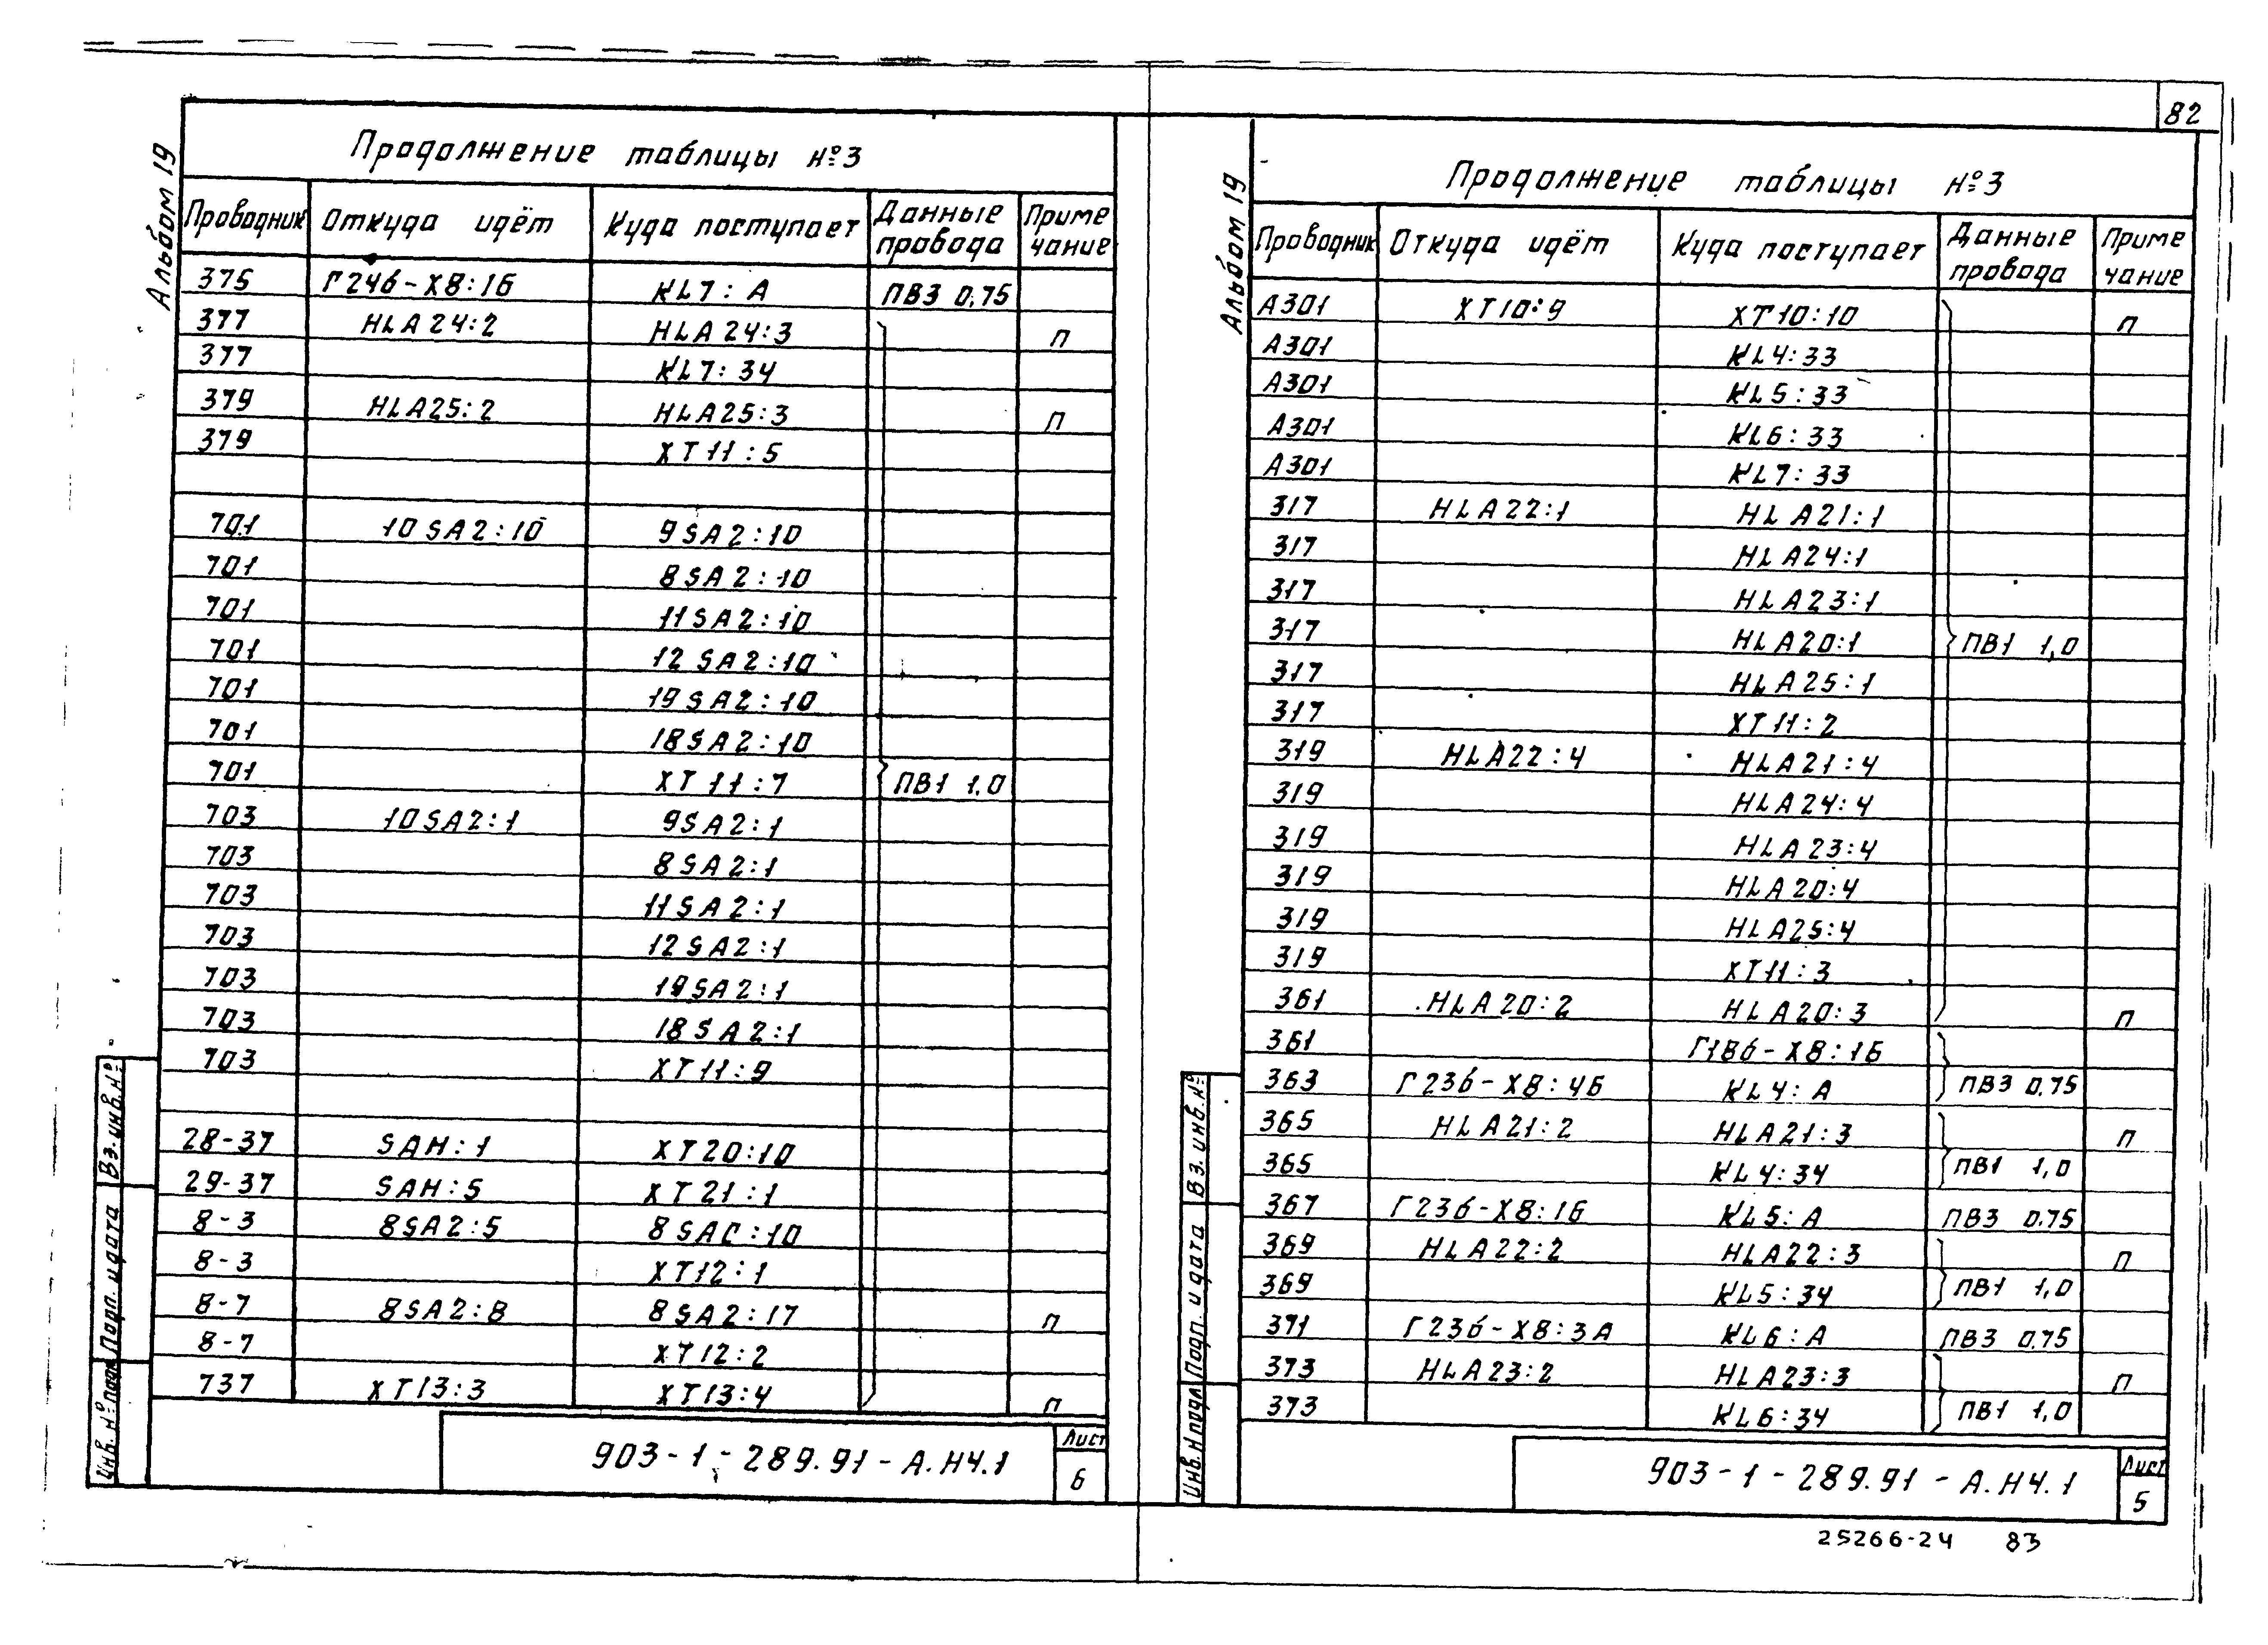 82
Альбом 19
Продолжение таблицы №3
Проводник Откуда идёт Куда поступает Данные провода Примечание
375 Г24б-Х8:1Б KL7:А ПВ3 0,75
377 HLA24:2 HLA24:3 п
377 KL7:34
379 HLA25:2 HLA25:3 п
379 XT11:5
701 10SA2:10 9SA2:10
701 8SA2:10
701 11SA2:10
701 12SA2:10
701 19SA2:10
701 18SA2:10
701 XT11:7 ПВ1 1,0
703 10SA2:1 9SA2:1
703 8SA2:1
703 11SA2:1
703 12SA2:1
703 19SA2:1
703 18SA2:1
703 XT11:9
28-37 SAH:1 XT20:10
29-37 SAH:5 XT21:1
8-3 8SA2:5 8SAC:10
8-3 XT12:1
8-7 8SA2:8 8SA2:17 п
8-7 XT12:2
737 XT13:3 XT13:4 п
903-1-289.91-А.НЧ.1
Лист
6
Инв.№подл. Подп. и дата Вз.инв.№
Альбом 19
Продолжение таблицы №3
Проводник Откуда идёт Куда поступает Данные провода Примечание
А301 XT10:9 XT10:10 п
А301 KL4:33
А301 KL5:33
А301 KL6:33
А301 KL7:33
317 HLA22:1 HLA21:1
317 HLA24:1
317 HLA23:1
317 HLA20:1 ПВ1 1,0
317 HLA25:1
317 XT11:2
319 HLA22:4 HLA21:4
319 HLA24:4
319 HLA23:4
319 HLA20:4
319 HLA25:4
319 XT11:3
361 HLA20:2 HLA20:3 п
361 Г18б-Х8:1Б
363 Г23б-Х8:4Б KL4:А ПВ3 0,75
365 HLA21:2 HLA21:3 п
365 KL4:34 ПВ1 1,0
367 Г23б-Х8:1Б KL5:А ПВ3 0,75
369 HLA22:2 HLA22:3 п
369 KL5:34 ПВ1 1,0
371 Г23б-Х8:3А KL6:А ПВ3 0,75
373 HLA23:2 HLA23:3 п
373 KL6:34 ПВ1 1,0
903-1-289.91-А.НЧ.1
Лист
5
Инв.Nподл. Подп. и дата Вз.инв.№
25266-24 83